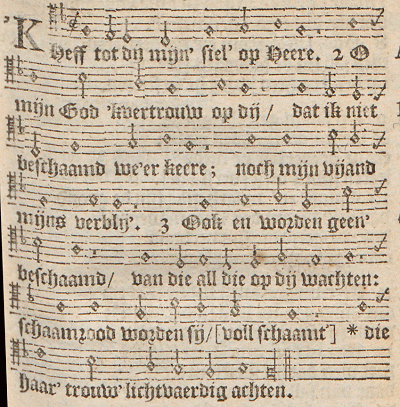 'K
Heff tot dij mijn' siel' op Heere. 2 O
mijn God 'kvertrouw op dij / dat ik niet
beschaamd we'er keere; noch mijn vijand
mijns verblij'. 3 Ook en worden geen'
beschaamd/ van die all die op dij wachten:
schaamrood worden sij/[voll schaamt'] * die
haar' trouw' lichtvaerdig achten.